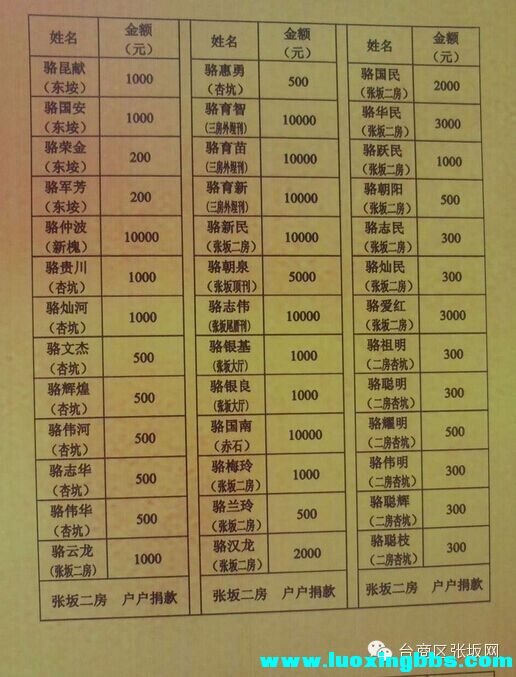 姓名 金额（元） 姓名 金额（元） 姓名 金额（元）
骆昆献（东垵） 1000 骆惠勇（杏坑） 500 骆国民（张坂二房） 2000
骆国安（东垵） 1000 骆育智（三房外埕刊） 10000 骆华民（张坂二房） 3000
骆荣金（东垵） 200 骆育苗（三房外埕刊） 10000 骆跃民（张坂二房） 1000
骆军芳（东垵） 200 骆育新（三房外埕刊） 10000 骆朝阳（张坂二房） 500
骆仲波（新槐） 10000 骆新民（张坂二房） 10000 骆志民（张坂二房） 300
骆贵川（杏坑） 1000 骆朝泉（张坂顶刊） 5000 骆灿民（张坂二房） 300
骆灿河（杏坑） 1000 骆志伟 10000 骆爱红（张坂二房） 3000
骆文杰（杏坑） 500 骆银基（张坂大厅） 1000 骆祖明（二房杏坑） 300
骆辉煌（杏坑） 500 骆银良（张坂大厅） 1000 骆聪明（二房杏坑） 300
骆伟河（杏坑） 500 骆国南（赤石） 10000 骆耀明（二房杏坑） 500
骆志华（杏坑） 500 骆梅玲（张坂二房） 1000 骆伟明（二房杏坑） 300
骆伟华（杏坑） 500 骆兰玲（张坂二房） 500 骆聪辉（二房杏坑） 300
骆云龙（张坂二房） 1000 骆汉龙（张坂二房） 2000 骆聪枝（二房杏坑） 300
张坂二房 户户捐款 张坂二房 户户捐款 张坂二房 户户捐款
台商区张坂网
www.luoxingbbs.com